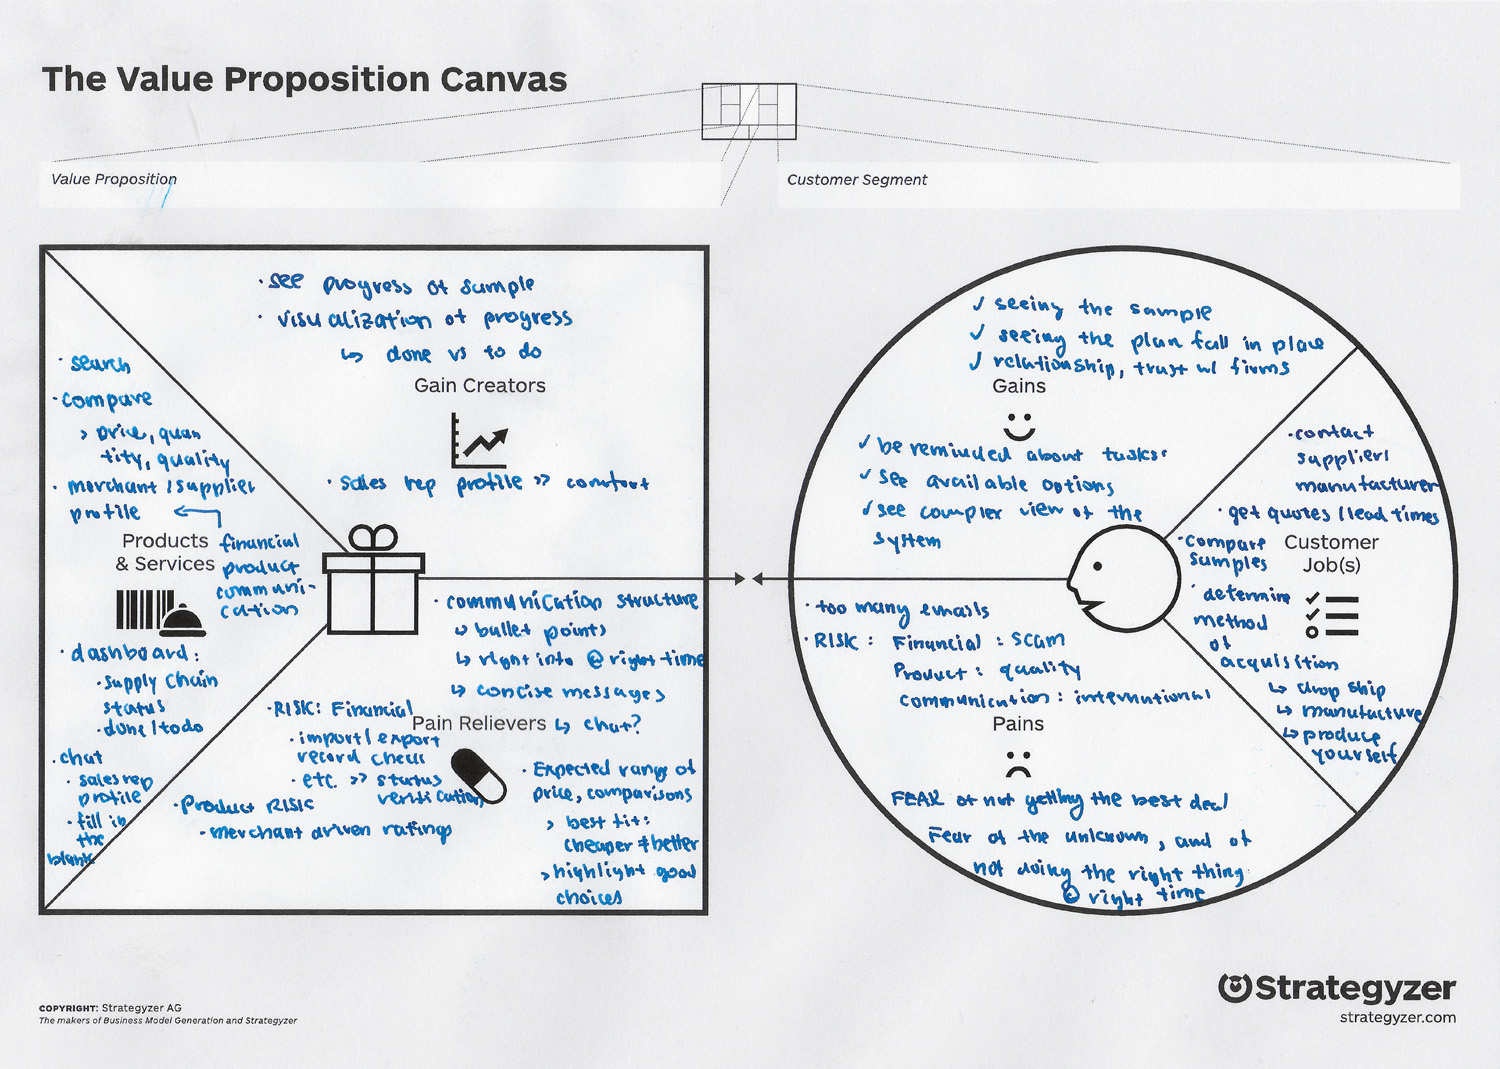 The Value Proposition Canvas
Value Proposition
Customer Segment
· see progress of sample
· visualization of progress
↳ done vs to do
Gain Creators
· sales rep profile >> comfort
· search
· compare
> price, quan
tity, quality
· merchant / supplier
profile
Products
& Services
financial
product
communi-
cation
· dashboard:
· supply chain
status
· done / todo
· chat
· sales rep
profile
· fill in
the
blank
· communication structure
↳ bullet points
↳ right info @ right time
↳ concise messages
↳ chat?
Pain Relievers
· RISK: Financial
· import / export
record check
· etc. >> status
verification
· Product RISK
· merchant driven ratings
· Expected range of
price, comparisons
> best fit:
cheaper & better
> highlight good
choices
✓ seeing the sample
✓ seeing the plan fall in place
✓ relationship, trust w/ firms
Gains
✓ be reminded about tasks
✓ see available options
✓ see complex view of the
system
· contact
supplier /
manufacturer
· get quotes / lead times
· compare
samples
Customer
Job(s)
· determine
method
of
acquisition
↳ drop ship
↳ manufacture
↳ produce
yourself
· too many emails
· RISK: Financial: scam
Product: quality
communication: international
Pains
FEAR of not getting the best deal
Fear of the unknown, and of
not doing the right thing
@ right time
COPYRIGHT: Strategyzer AG
The makers of Business Model Generation and Strategyzer
Strategyzer
strategyzer.com